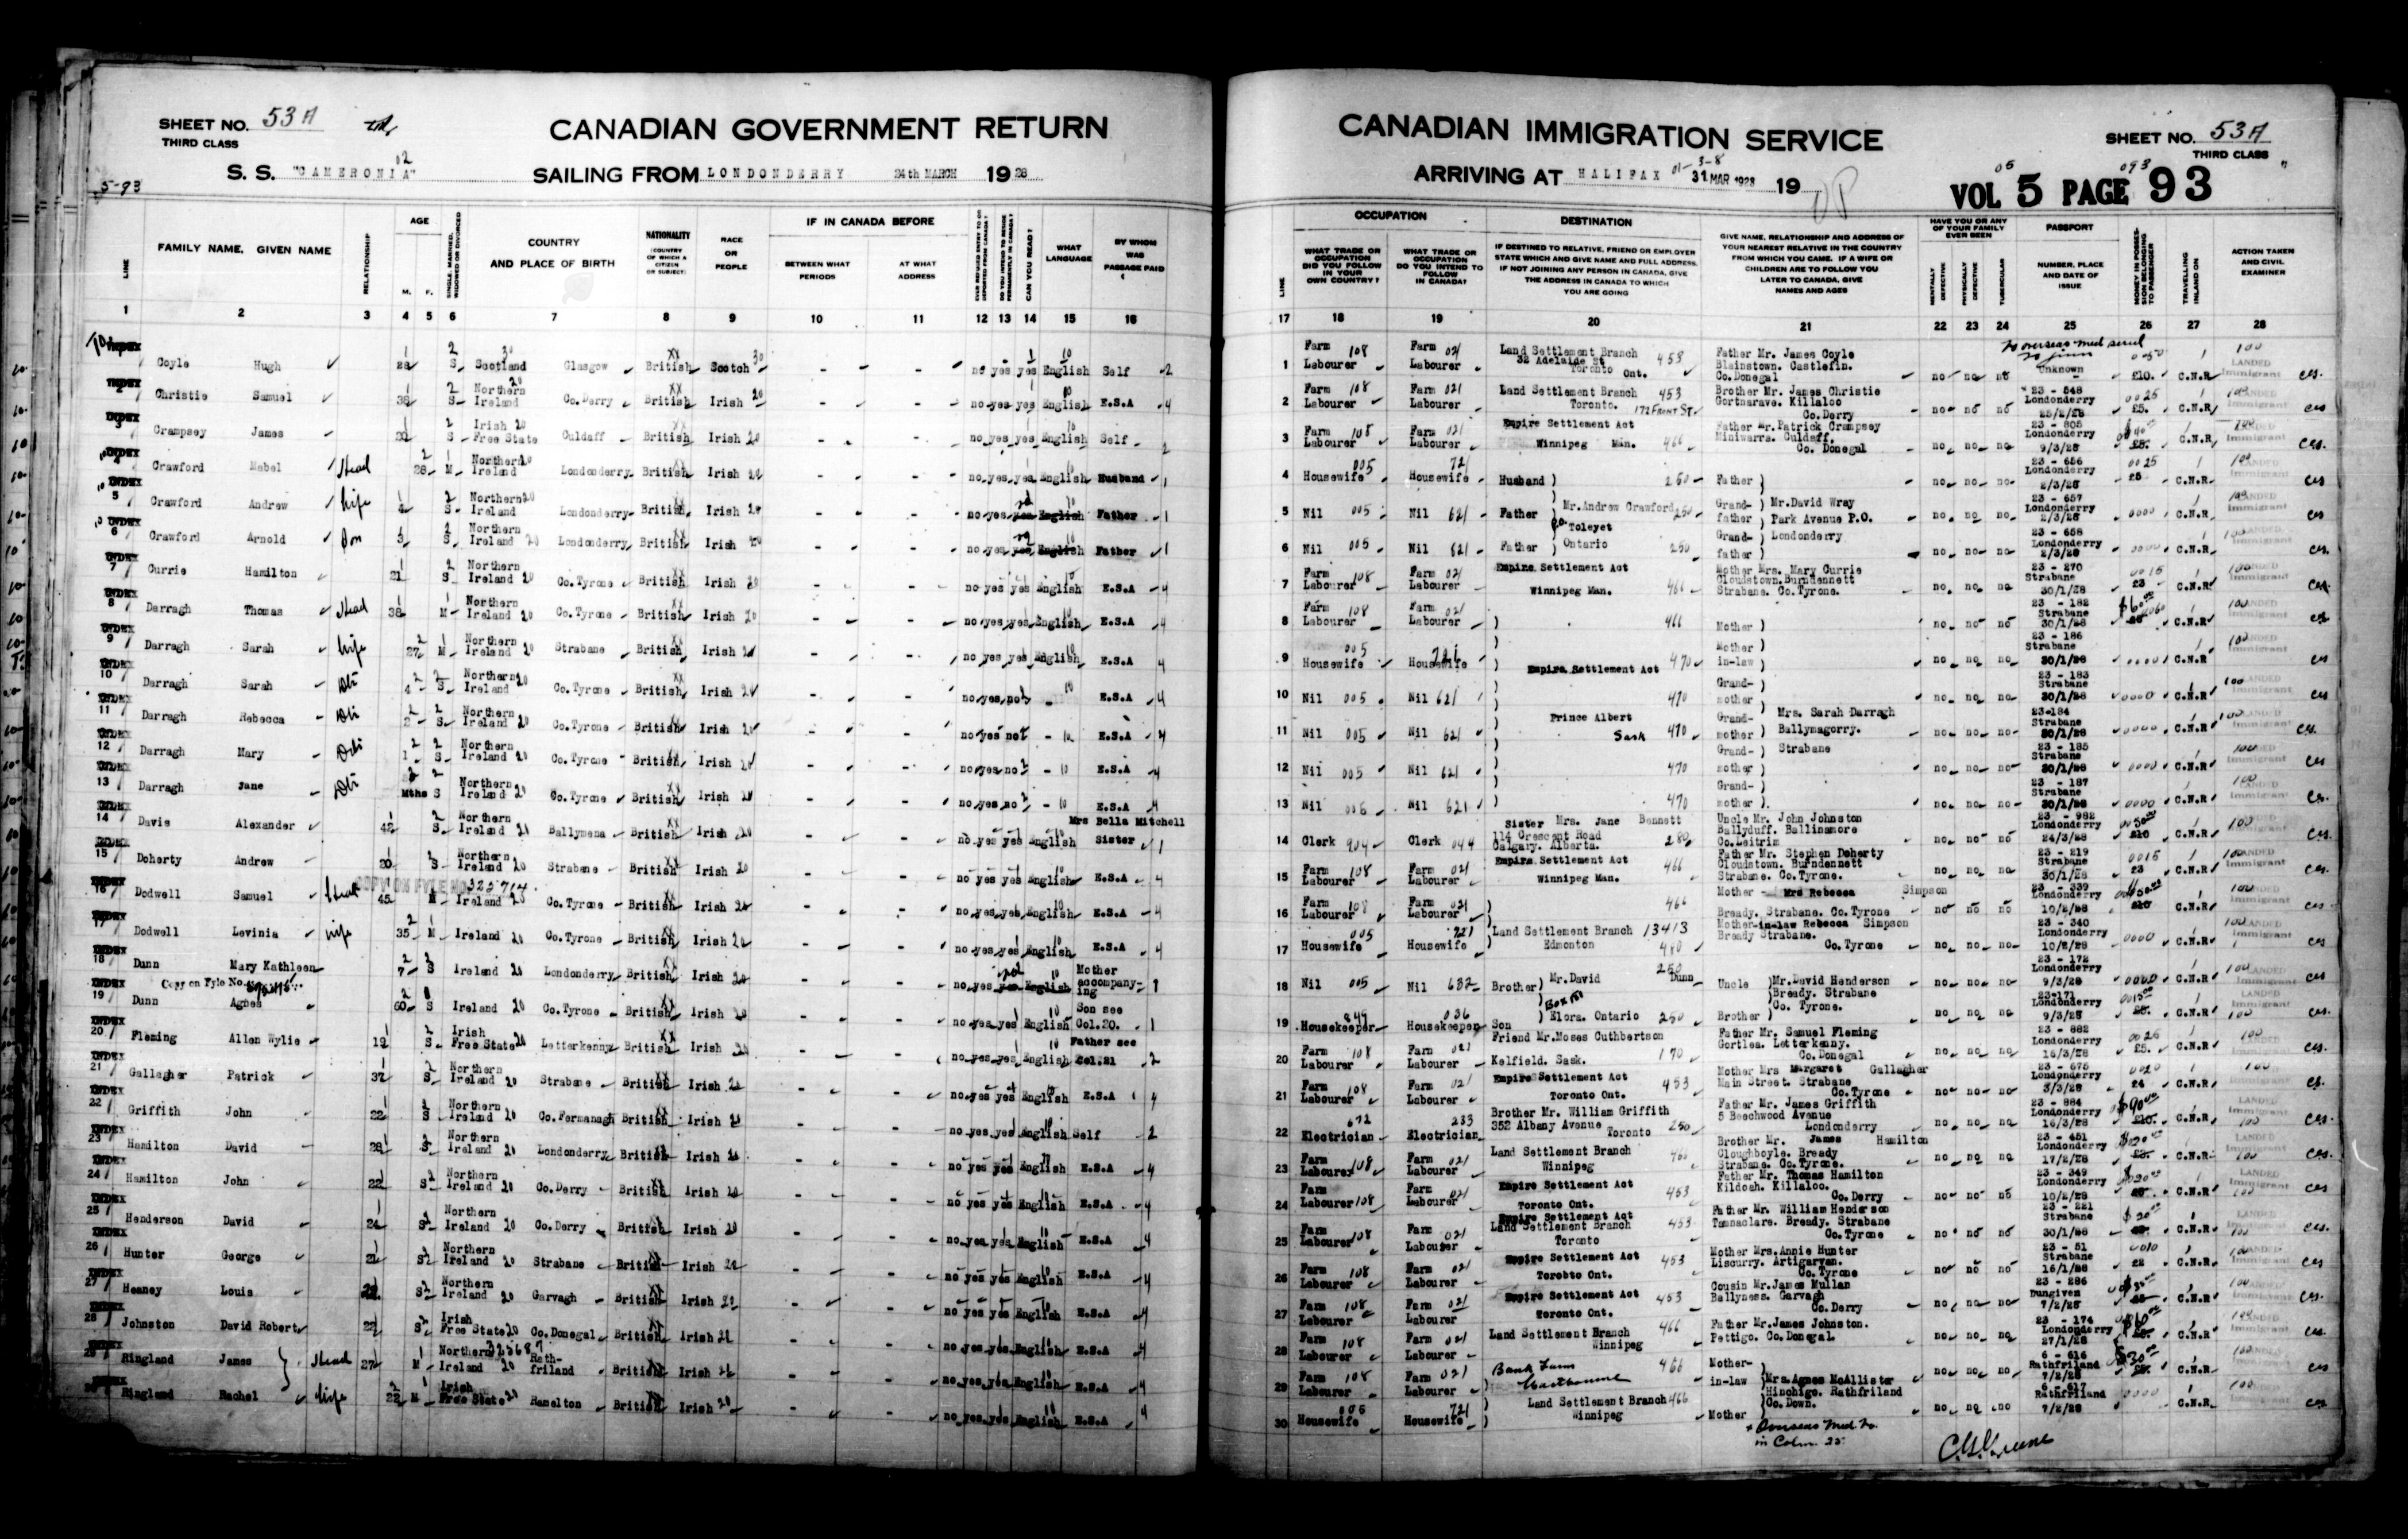 SHEET NO. 53A
THIRD CLASS
CANADIAN GOVERNMENT RETURN
S. S. "CAMERONIA" SAILING FROM LONDONDERRY 24th MARCH 1928
5-93
FAMILY NAME, GIVEN NAME
RELATIONSHIP
AGE
SINGLE, MARRIED, WIDOWED OR DIVORCED
COUNTRY AND PLACE OF BIRTH
NATIONALITY (COUNTRY OF WHICH A CITIZEN OR SUBJECT)
RACE OR PEOPLE
IF IN CANADA BEFORE
BETWEEN WHAT PERIODS
AT WHAT ADDRESS
CAN YOU READ?
WHAT LANGUAGE
BY WHOM WAS PASSAGE PAID
LINE
1 2 3 4 5 6 7 8 9 10 11 12 13 14 15 16
Coyle Hugh 28 S Scotland Glasgow British Scotch no yes yes English Self
2 Christie Samuel 38 S Northern Ireland Co.Derry British Irish no yes yes English E.S.A
3 Crampsey James S Irish Free State Culdaff British Irish no yes yes English Self
4 Crawford Mabel Head 28 M Northern Ireland Londonderry British Irish no yes yes English Husband
5 Crawford Andrew wife 4 S Northern Ireland Londonderry British Irish no yes yes English Father
6 Crawford Arnold Son 3 S Northern Ireland Londonderry British Irish no yes yes English Father
7 Currie Hamilton 21 S Northern Ireland Co.Tyrone British Irish no yes yes English E.S.A
8 Darragh Thomas Head 38 M Northern Ireland Co.Tyrone British Irish no yes yes English E.S.A
9 Darragh Sarah wife 27 M Northern Ireland Strabane British Irish no yes yes English E.S.A
10 Darragh Sarah 4 S Northern Ireland Co.Tyrone British Irish no yes no - E.S.A
11 Darragh Rebecca 2 S Northern Ireland Co.Tyrone British Irish no yes no - E.S.A
12 Darragh Mary 1 S Northern Ireland Co.Tyrone British Irish no yes no - E.S.A
13 Darragh Jane Mths S Northern Ireland Co.Tyrone British Irish no yes no - E.S.A
14 Davis Alexander 42 S Northern Ireland Ballymena British Irish no yes yes English Mrs Bella Mitchell Sister
15 Doherty Andrew 20 S Northern Ireland Strabane British Irish no yes yes English E.S.A
COPY ON FYLE NO. 325714
16 Dodwell Samuel Head 45 M Ireland Co.Tyrone British Irish no yes yes English E.S.A
17 Dodwell Levinia wife 35 M Ireland Co.Tyrone British Irish no yes yes English E.S.A
18 Dunn Mary Kathleen 7 S Ireland Londonderry British Irish no yes yes English Mother accompany-ing
Copy on Fyle No.
19 Dunn Agnes 60 S Ireland Co.Tyrone British Irish no yes yes English Son see Col.20.
20 Fleming Allen Wylie 19 S Irish Free State Letterkenny British Irish no yes yes English Father see Col.21
21 Gallagher Patrick 37 S Northern Ireland Strabane British Irish no yes yes English E.S.A
22 Griffith John 22 S Northern Ireland Co.Fermanagh British Irish no yes yes English Self
23 Hamilton David 28 S Northern Ireland Londonderry British Irish no yes yes English E.S.A
24 Hamilton John 22 S Northern Ireland Co.Derry British Irish no yes yes English E.S.A
25 Henderson David 24 S Northern Ireland Co.Derry British Irish no yes yes English E.S.A
26 Hunter George 21 S Northern Ireland Strabane British Irish no yes yes English E.S.A
27 Heaney Louis S Northern Ireland Garvagh British Irish no yes yes English E.S.A
28 Johnston David Robert 22 S Irish Free State Co.Donegal British Irish no yes yes English E.S.A
29 Ringland James Head 27 M Northern Ireland Rath-friland British Irish no yes yes English E.S.A
30 Ringland Rachel wife 22 M Irish Free State Ramelton British Irish no yes yes English E.S.A
CANADIAN IMMIGRATION SERVICE
SHEET NO. 53A
THIRD CLASS
ARRIVING AT HALIFAX 31 MAR 1928 19
VOL 5 PAGE 93
OCCUPATION
WHAT TRADE OR OCCUPATION DID YOU FOLLOW IN YOUR OWN COUNTRY?
WHAT TRADE OR OCCUPATION DO YOU INTEND TO FOLLOW IN CANADA?
DESTINATION
IF DESTINED TO RELATIVE, FRIEND OR EMPLOYER STATE WHICH AND GIVE NAME AND FULL ADDRESS. IF NOT JOINING ANY PERSON IN CANADA, GIVE THE ADDRESS IN CANADA TO WHICH YOU ARE GOING
GIVE NAME, RELATIONSHIP AND ADDRESS OF YOUR NEAREST RELATIVE IN THE COUNTRY FROM WHICH YOU CAME. IF A WIFE OR CHILDREN ARE TO FOLLOW YOU LATER TO CANADA, GIVE NAMES AND AGES
HAVE YOU OR ANY OF YOUR FAMILY EVER BEEN
MENTALLY DEFECTIVE
PHYSICALLY DEFECTIVE
TUBERCULAR
PASSPORT
NUMBER, PLACE AND DATE OF ISSUE
MONEY IN POSSESSION BELONGING TO PASSENGER
TRAVELLING INLAND ON
ACTION TAKEN AND CIVIL EXAMINER
17 18 19 20 21 22 23 24 25 26 27 28
1 Farm Labourer Farm Labourer Land Settlement Branch 32 Adelaide St Toronto Ont. Father Mr. James Coyle Blainstown. Castlefin. Co.Donegal no no no Unknown £10. C.N.R LANDED Immigrant
2 Farm Labourer Farm Labourer Land Settlement Branch Toronto. 172 FRONT ST. Brother Mr. James Christie Gortnarave. Killaloo Co.Derry no no no 23 - 548 Londonderry 25/2/28 £5. C.N.R
3 Farm Labourer Farm Labourer Empire Settlement Act Winnipeg Man. Father Mr.Patrick Crampsey Miniwarra. Culdaff. Co. Donegal no no no 23 - 805 Londonderry 9/3/28 C.N.R
4 Housewife Housewife Husband Father no no no 23 - 656 Londonderry 2/3/28 £5 C.N.R
5 Nil Nil Father Mr.Andrew Crawford Toleyet Grand-father Mr.David Wray Park Avenue P.O. no no no 23 - 657 Londonderry 2/3/28 C.N.R
6 Nil Nil Father Ontario Grand-father Londonderry no no no 23 - 658 Londonderry 2/3/28 C.N.R
7 Farm Labourer Farm Labourer Empire Settlement Act Winnipeg Man. Mother Mrs. Mary Currie Cloudstown.Burndennett Strabane. Co.Tyrone. no no no 23 - 270 Strabane 30/1/28 £3 C.N.R
8 Farm Labourer Farm Labourer Mother no no no 23 - 182 Strabane 30/1/28 C.N.R
9 Housewife Housewife Empire Settlement Act Mother in-law no no no 23 - 186 Strabane 30/1/28 C.N.R
10 Nil Nil Grand-mother no no no 23 - 183 Strabane 30/1/28 C.N.R
11 Nil Nil Prince Albert Sask Grand-mother Mrs. Sarah Darragh Ballymagorry. no no no 23-184 Strabane 30/1/28 C.N.R
12 Nil Nil Grand-mother Strabane no no no 23 - 185 Strabane 30/1/28 C.N.R
13 Nil Nil Grand-mother no no no 23 - 187 Strabane 30/1/28 C.N.R
14 Clerk Clerk Sister Mrs. Jane Bennett 114 Crescent Road Calgary. Alberta. Uncle Mr. John Johnston Ballyduff. Ballinamore Co.Leitrim no no no 23 - 982 Londonderry 24/3/28 £10 C.N.R
15 Farm Labourer Farm Labourer Empire Settlement Act Winnipeg Man. Father Mr. Stephen Doherty Cloudstown. Burndennett Strabane. Co.Tyrone. no no no 23 - 219 Strabane 30/1/28 £3 C.N.R
16 Farm Labourer Farm Labourer Mother Mrs Rebecca Simpson Bready. Strabane. Co.Tyrone no no no 23 - 339 Londonderry 10/2/28 £10 C.N.R
17 Housewife Housewife Land Settlement Branch 13413 Edmonton Mother-in-law Rebecca Simpson Bready Strabane. Co.Tyrone no no no 23 - 340 Londonderry 10/2/28 C.N.R
18 Nil Nil Brother Mr.David Dunn Uncle Mr.David Henderson Bready. Strabane no no no 23 - 172 Londonderry 9/3/28 C.N.R
19 Housekeeper Housekeeper Son Elora. Ontario Brother Co. Tyrone. no no no 23-171 Londonderry 9/3/28 C.N.R
20 Farm Labourer Farm Labourer Friend Mr.Moses Cuthbertson Kelfield. Sask. Father Mr. Samuel Fleming Gortlea. Letterkenny. Co.Donegal no no no 23 - 882 Londonderry 16/3/28 £5. C.N.R
21 Farm Labourer Farm Labourer Empire Settlement Act Toronto Ont. Mother Mrs Margaret Gallagher Main Street. Strabane Co.Tyrone no no no 23 - 675 Londonderry 3/3/28 £4 C.N.R
22 Electrician Electrician Brother Mr. William Griffith 352 Albany Avenue Toronto Father Mr. James Griffith 5 Beechwood Avenue Londonderry no no no 23 - 884 Londonderry 16/3/28 £10. C.N.R
23 Farm Labourer Farm Labourer Land Settlement Branch Winnipeg Brother Mr. James Hamilton Cloughboyle. Bready Strabane. Co.Tyrone. no no no 23 - 451 Londonderry 17/2/28 C.N.R
24 Farm Labourer Farm Labourer Empire Settlement Act Toronto Ont. Father Mr. Thomas Hamilton Kildoah. Killaloo. Co.Derry no no no 23 - 349 Londonderry 10/2/28 C.N.R
25 Farm Labourer Farm Labourer Empire Settlement Act Land Settlement Branch Toronto Father Mr. William Henderson Tamnaclare. Bready. Strabane Co.Tyrone no no no 23 - 221 Strabane 30/1/28 C.N.R
26 Farm Labourer Farm Labourer Empire Settlement Act Torobto Ont. Mother Mrs.Annie Hunter Liscurry. Artigarvan. Co.Tyrone no no no 23 - 51 Strabane 16/1/28 £2 C.N.R
27 Farm Labourer Farm Labourer Empire Settlement Act Toronto Ont. Cousin Mr.James Mullan Ballyness. Garvagh Co.Derry no no no 23 - 286 Dungiven 7/2/28 C.N.R
28 Farm Labourer Farm Labourer Land Settlement Branch Winnipeg Father Mr.James Johnston. Pettigo. Co.Donegal no no no 23 - 174 Londonderry 27/1/28 C.N.R
29 Farm Labourer Farm Labourer Bank Farm Westbourne Mother-in-law Mrs.Agnes McAllister Hinchigo. Rathfriland no no no 6 - 616 Rathfriland 7/2/28 C.N.R
30 Housewife Housewife Land Settlement Branch Winnipeg Mother Co.Down. no no no 6 - 617 Rathfriland 7/2/28 C.N.R
+ Overseas Med No.
in Colm. 25